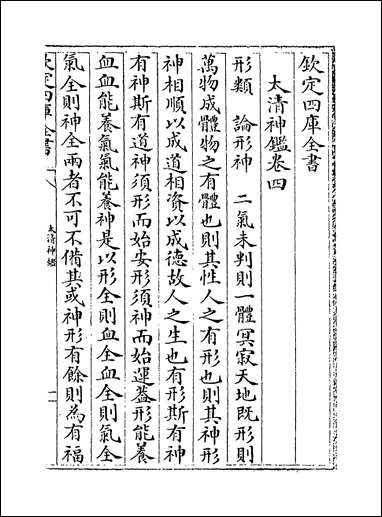 欽定四庫全書
太清神鑑卷四
形類　論形神　二氣未判則一體冥寂天地既形則
萬物成體物之有體也則其性人之有形也則其神形
神相順以成道相資以成德故人之生也有形斯有神
有神斯有道神須形而始安形須神而始運蓋形能養
血血能養氣氣能養神是以形全則血全血全則氣全
氣全則神全兩者不可不備其或神形有餘則為有福
欽定四庫全書
太清神鑑
一